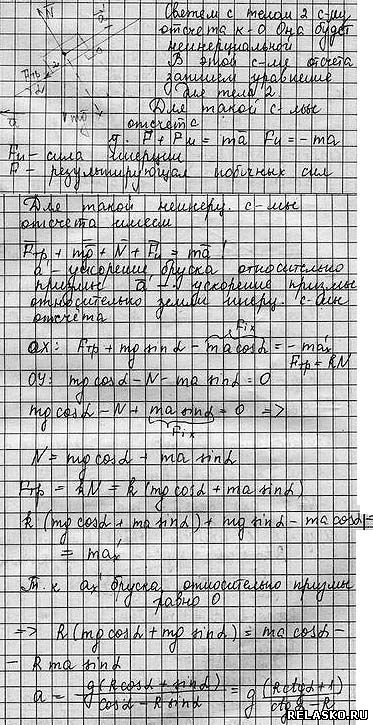 N
Свяжем с телом 2 с-му
отсчета к-0 Она будет
неинерциальной
В этой с-ме отсчета
запишем уравнение
для тела 2
Для такой с-мы
отсчета
Fтр
α
mg
a
F + Fи = ma Fи = -ma
Fи - сила инерции
F - результирующая побочных сил
Для такой неинерц. с-мы
отсчета имеем
Fтр + mg + N + Fи = ma'
a' - ускорение бруска относительно
призмы a - ускорение призмы
относительно земли инерц. с-мы
отсчёта
Fix
ох: Fтр + mg sin α - ma cos α = - max'
Fтр = kN
ОУ: mg cos α - N - ma sin α = 0
mg cos α - N + ma sin α = 0 =>
Fix
N = mg cos α + ma sin α
Fтр = kN = k (mg cos α + ma sin α)
k (mg cos α + ma sin α) + mg sin α - ma cos α
= max'
Т. к ax' бруска относительно призмы
равно 0
=> k (mg cos α + mg sin α) = ma cos α -
- k ma sin α
a = g(k cos α + sin α) / cos α - k sin α = g (k ctg α + 1) / ctg α - k
RELASKO.RU